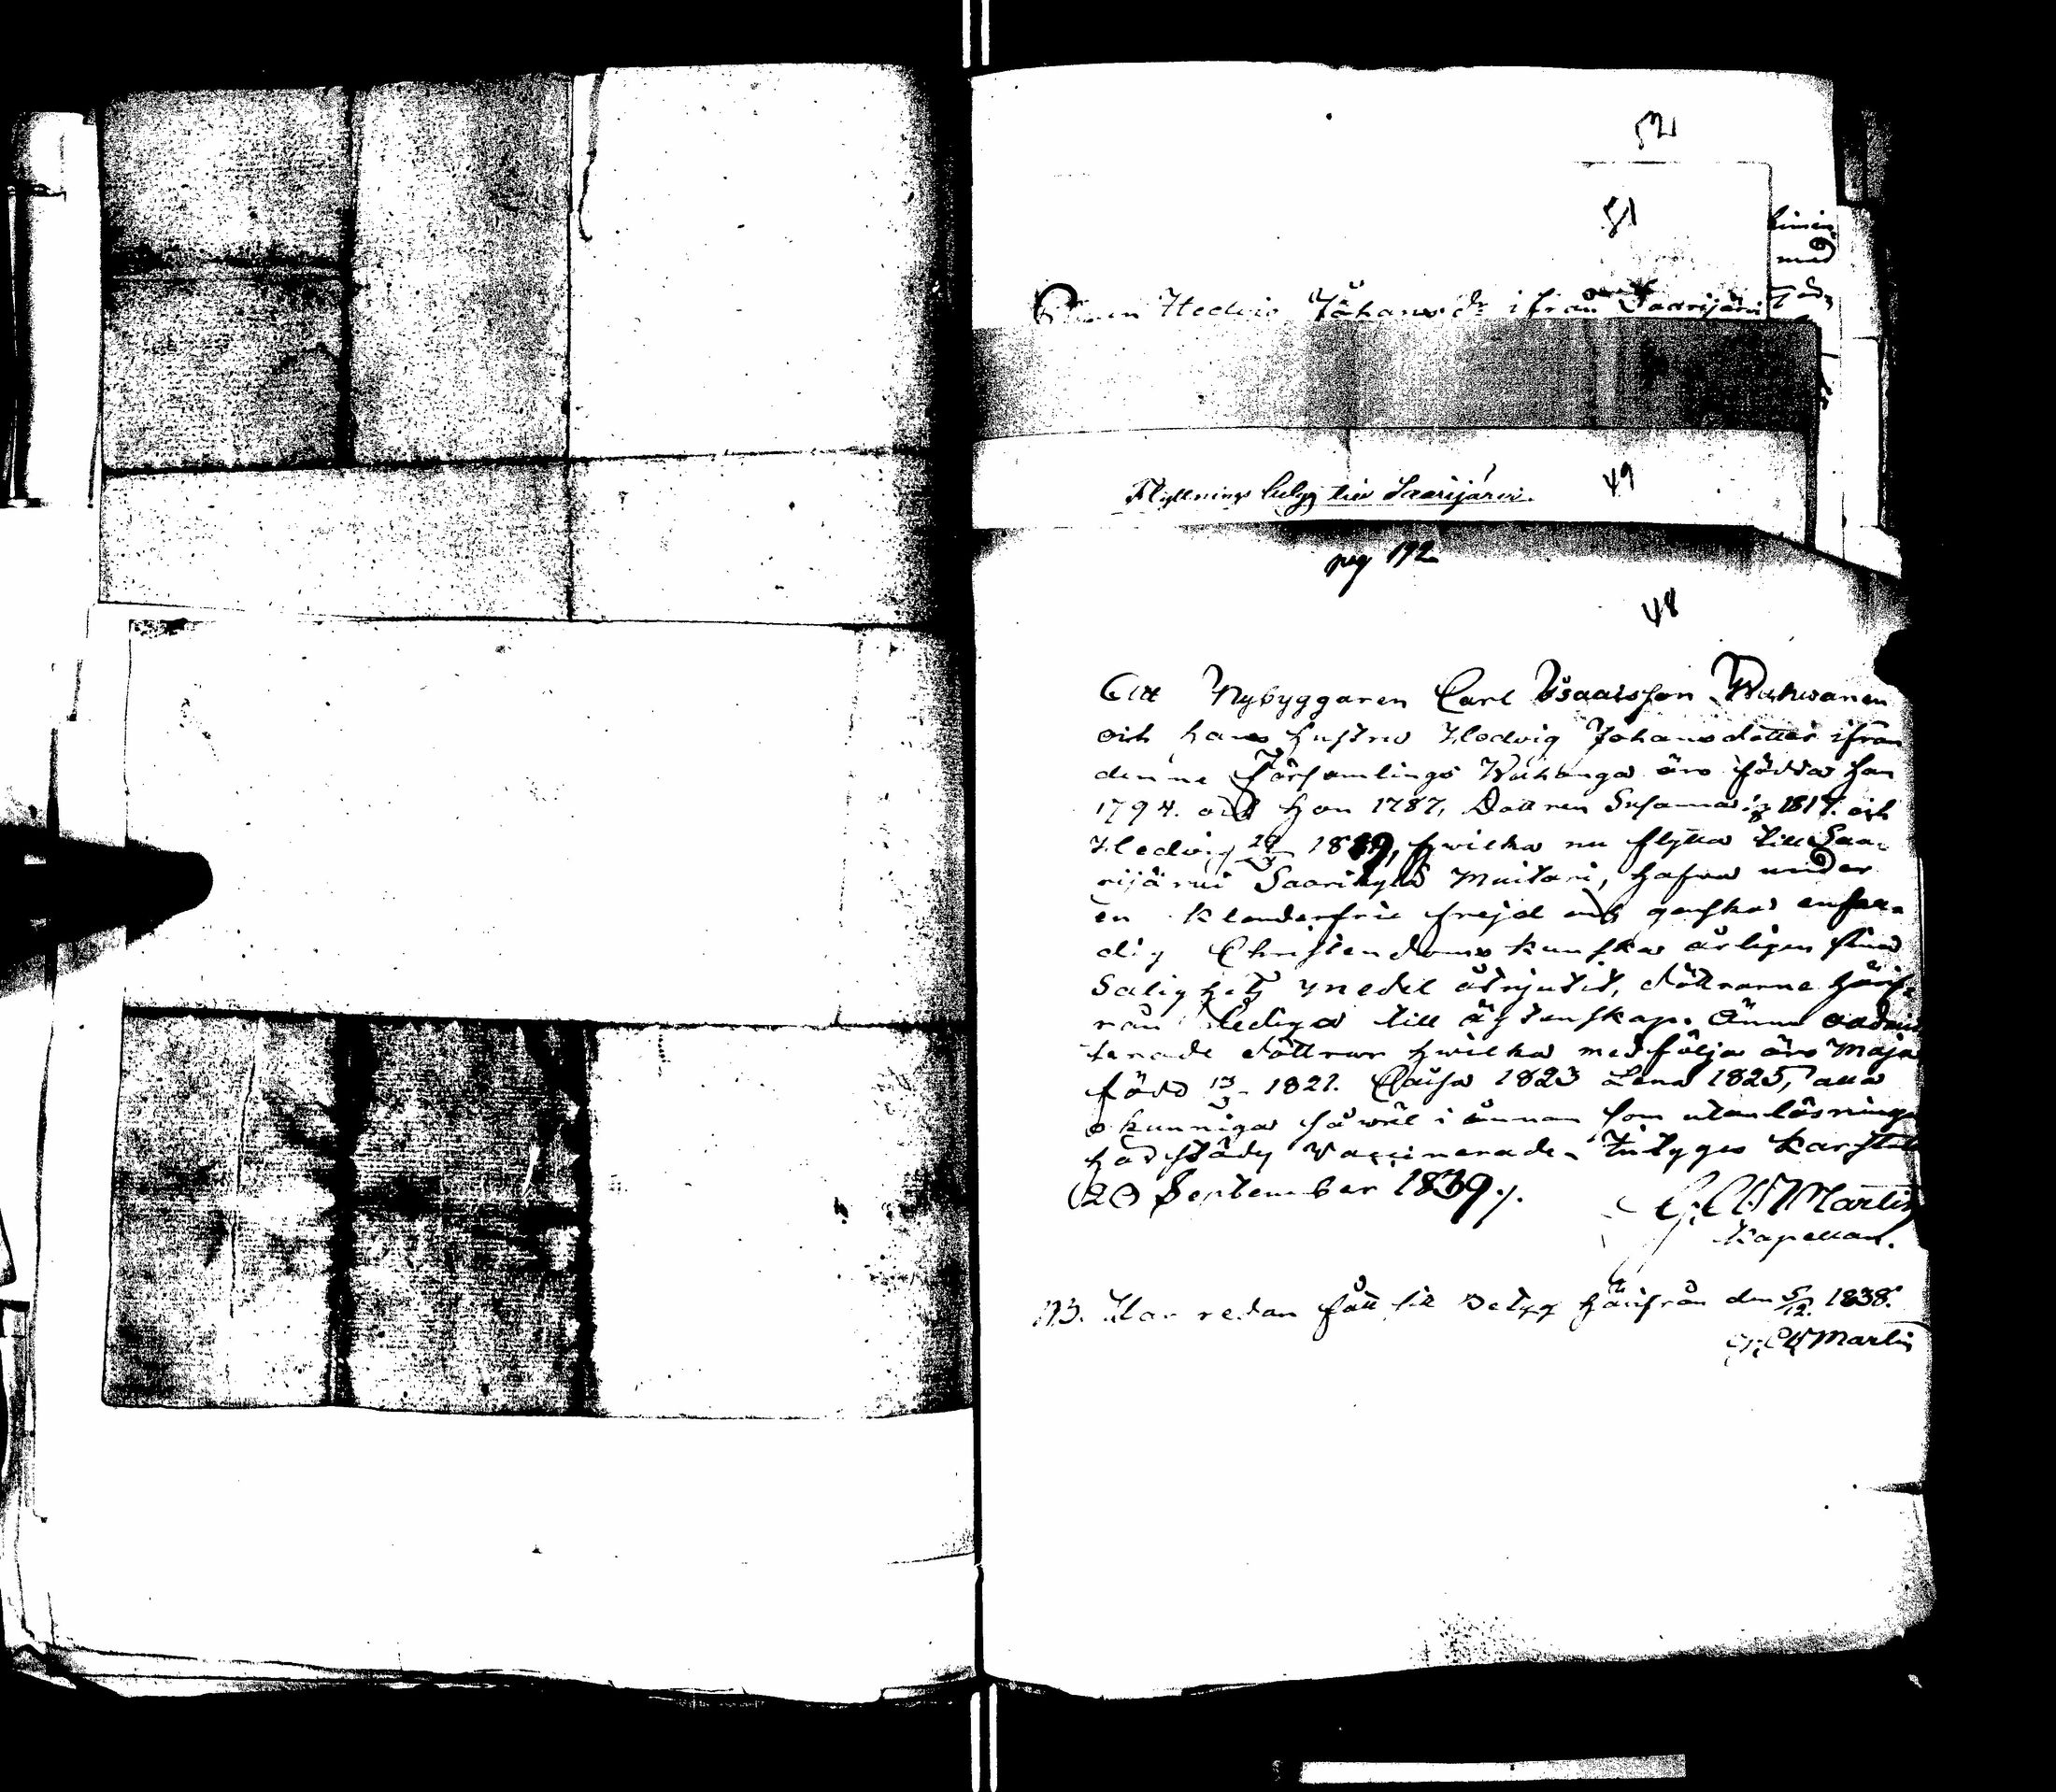 52
51
linien
med
Hedvig Johansdr ifrån Saarijärvi
Flyttnings betyg till Saarijärvi.
49
pag 192
48
Att Nybyggaren Carl Isaaksson Wahvanen
och hans hustru Hedvig Johansdotter ifrån
denne Församlings Wahanga äro födda han
1794. och hon 1787, Dottren Susanna 1817. och
Hedvig 1819, hwilka nu flytta till Saa-
rijärvi Saarikylä Muitari, hafva under
en klanderfri frejd och ganska enfal-
dig Christendoms kunskap årligen sina
Salighets medel åtnjutit, döttrarna härif-
rån lediga till ägtenskap. Ännu oadmit-
terade döttrar hwilka medfölja äro Maja
född 13/3 1821. Caisa 1823 Lena 1825, alla
okunniga såwäl i innan som utanläsning
Vaccinerade. Intygas Karstula
20 September 1839.
Martin
Kapellan.
NB. Har redan fått sitt Betyg härifrån den 5/12. 1838.
Martin